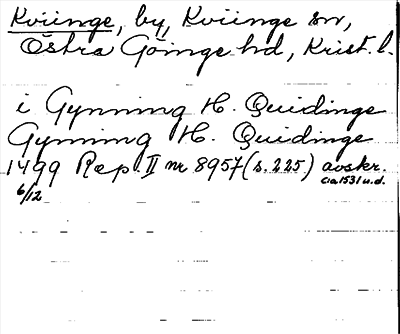 Kviinge, by, Kviinge sn,
Östra Göinge hd, Krist. l.
i Gynning H. Quidinge
Gynning H. Quidinge
1499 Rep. II nr 8957 (s. 225) avskr.
6/12 ca 1531 u.d.